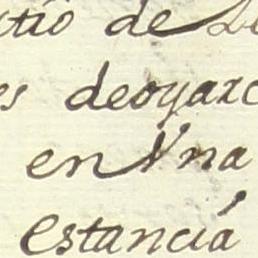 ctio de
es deoyarz
en Vna
estanciá